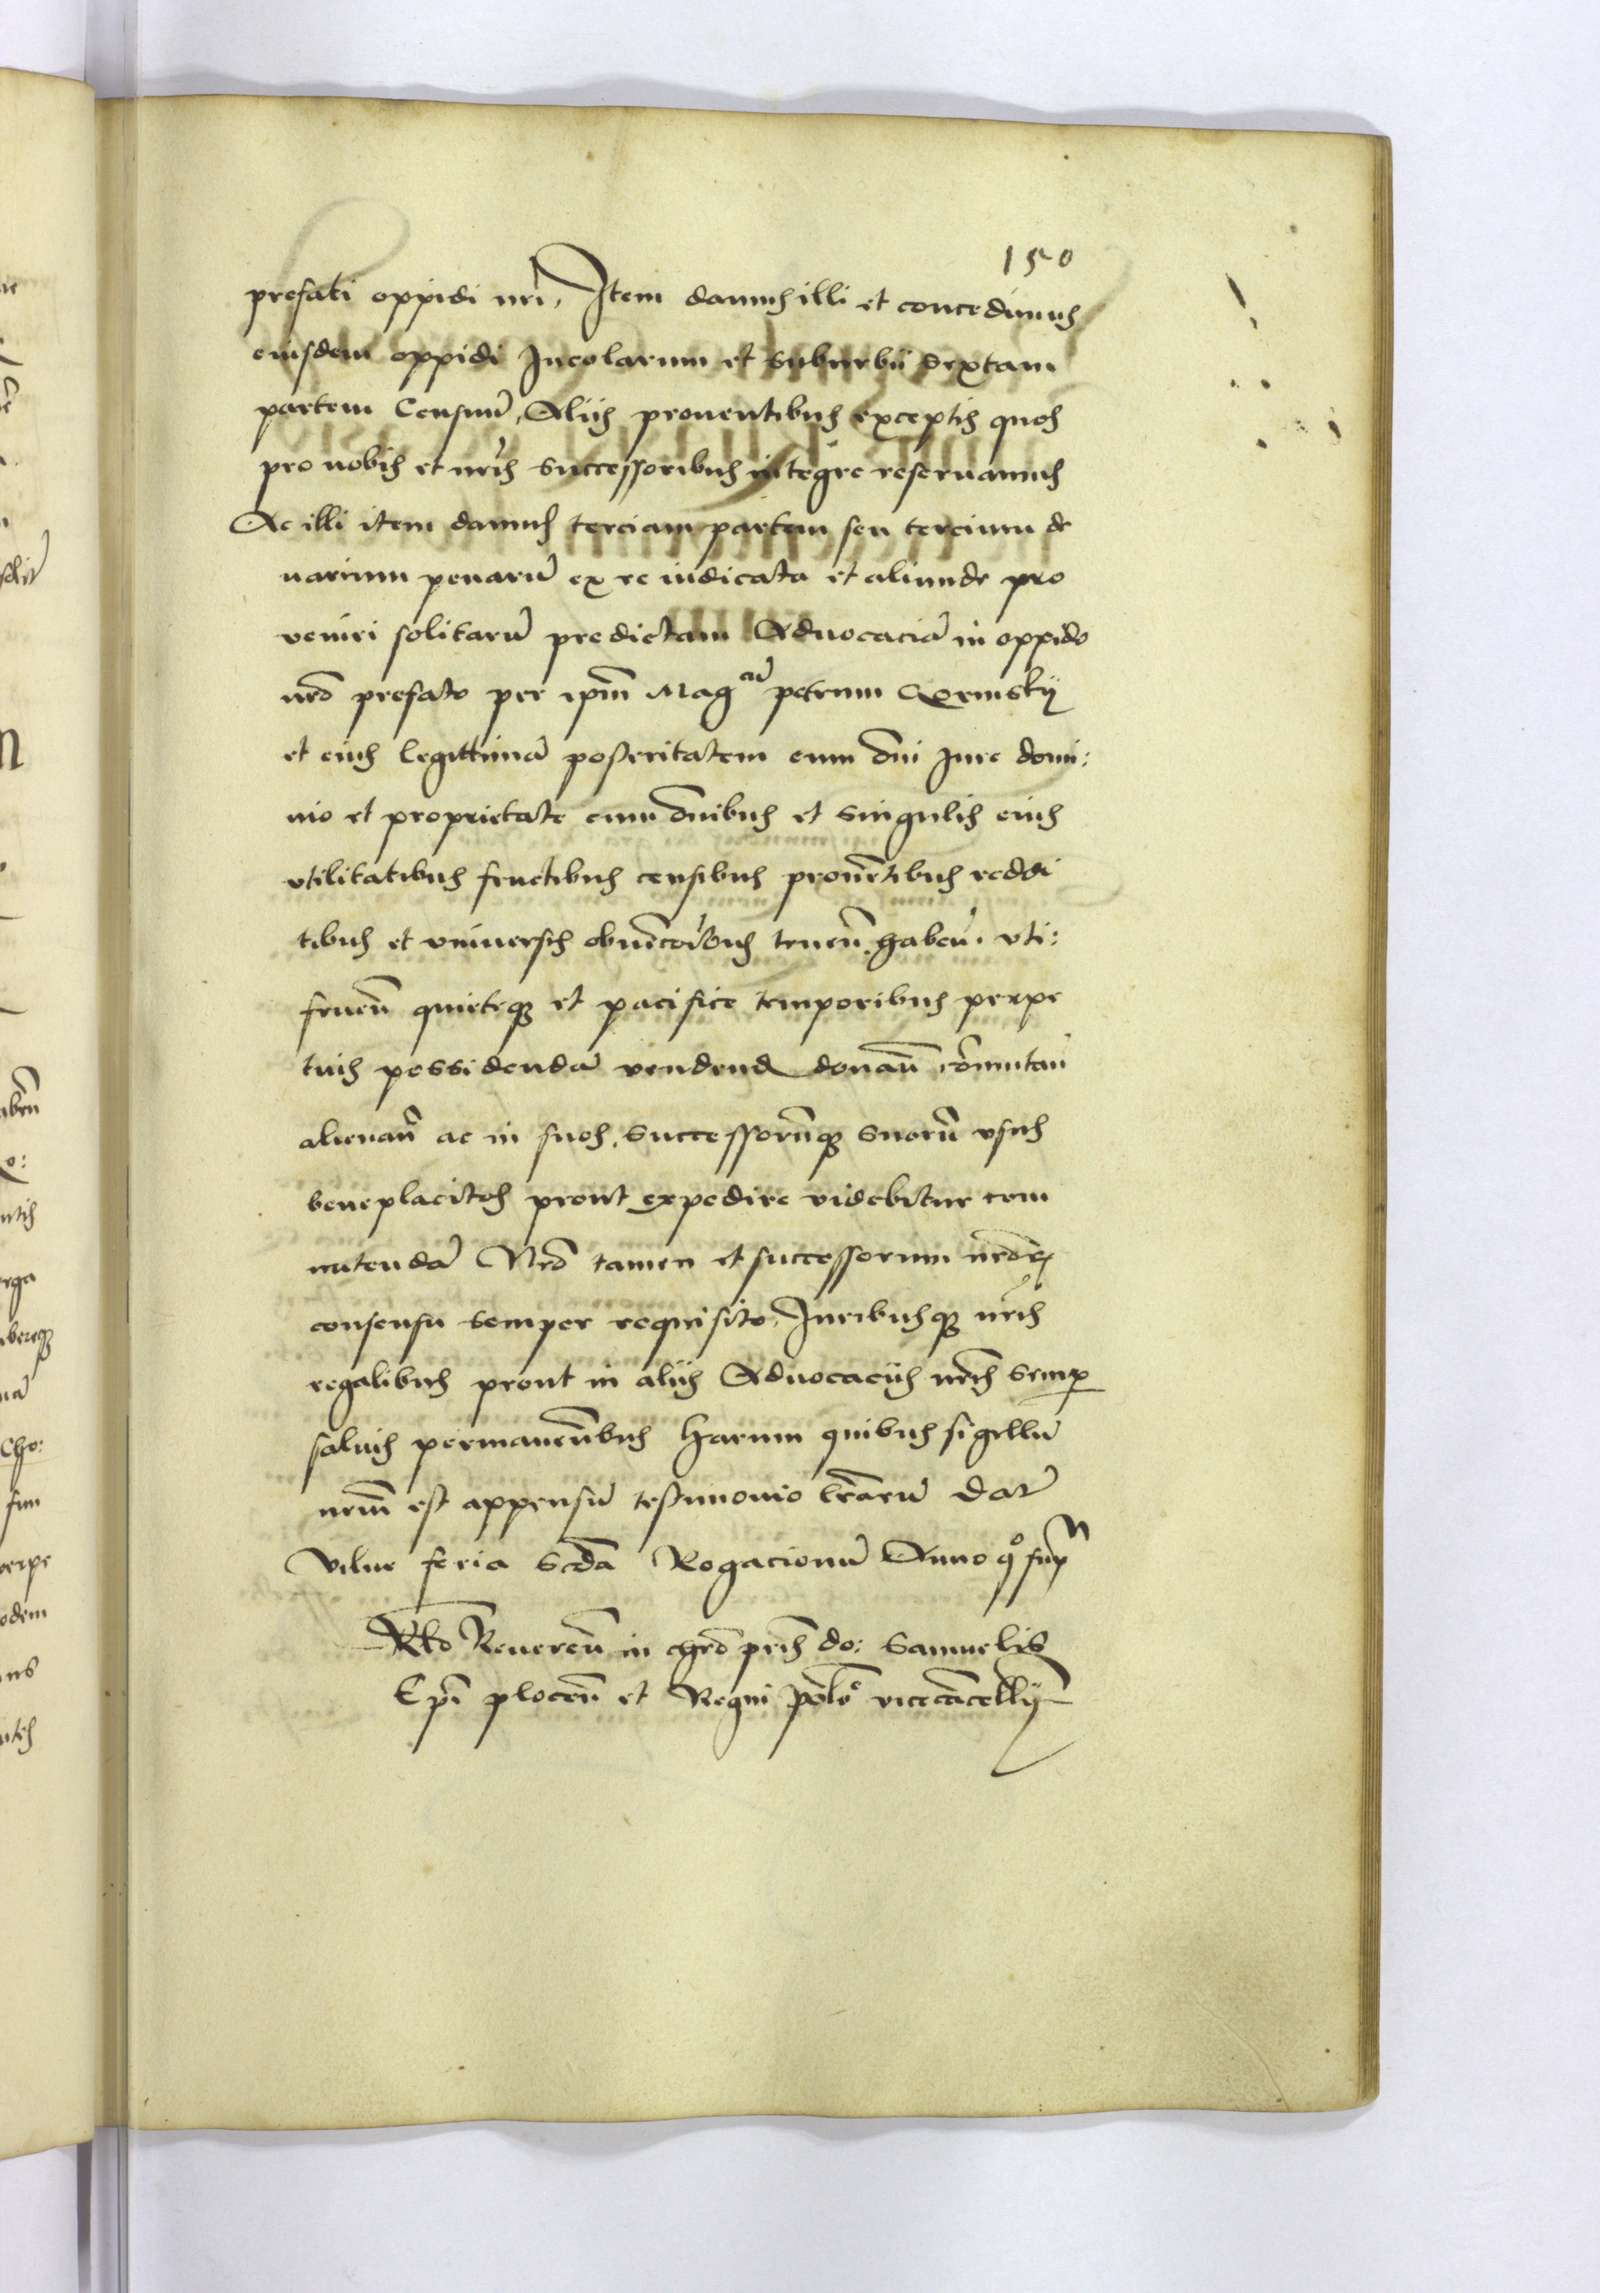 150
prefati oppidi nr̃i, Item damus illi et concedimus
eiusdem oppidi Incolarum et suburbii sextam
partem Censuũ, Aliis prouentibus exceptis quos
pro nobis et nr̃is successoribus integre reseruamus
Ac illi item damus terciam partem seu tercium de
narium penarũ ex re iudicata et aliunde pro
veniri solitarũ predictam Aduocaciã in oppido
nr̃o prefato per ip̃m Mag cũ petrum
et eius legittimã posteritatem cum om̃i Iure domi:
nio et proprietate cum om̃ibus et singulis eius
vtilitatibus fructibus censibus prouẽtibus reddi
tibus et vniuersis obuẽcoĩbus tenen̄ haben̄. vti:
fruen̄ quieteqꝫ et pacifice temporibus perpe
tuis possidendã vendend donan̄ cõmutan̄
alienan̄ ac in suos, successorũqꝫ suorũ vsus
beneplacitos prout expedire videbitur con
uertendã Nr̃o tamen et successorum nr̃oꝝ
consensu semper requisito, Iuribusqꝫ nr̃is
regalibus prout in aliis Aduocaciis nr̃is semꝑ
saluis permanen̄bus Harum quibus sigillũ
nr̃m est appensũ testimonio lr̃arũ Dat̃
Vilne feria scd̃a Rogacionũ Anno qͦ supra
Rlo Reueren̄ in chrõ pr̃is do: Samuelis
Epĩ plocen̄ et Regni polõe vicecãcellÿ